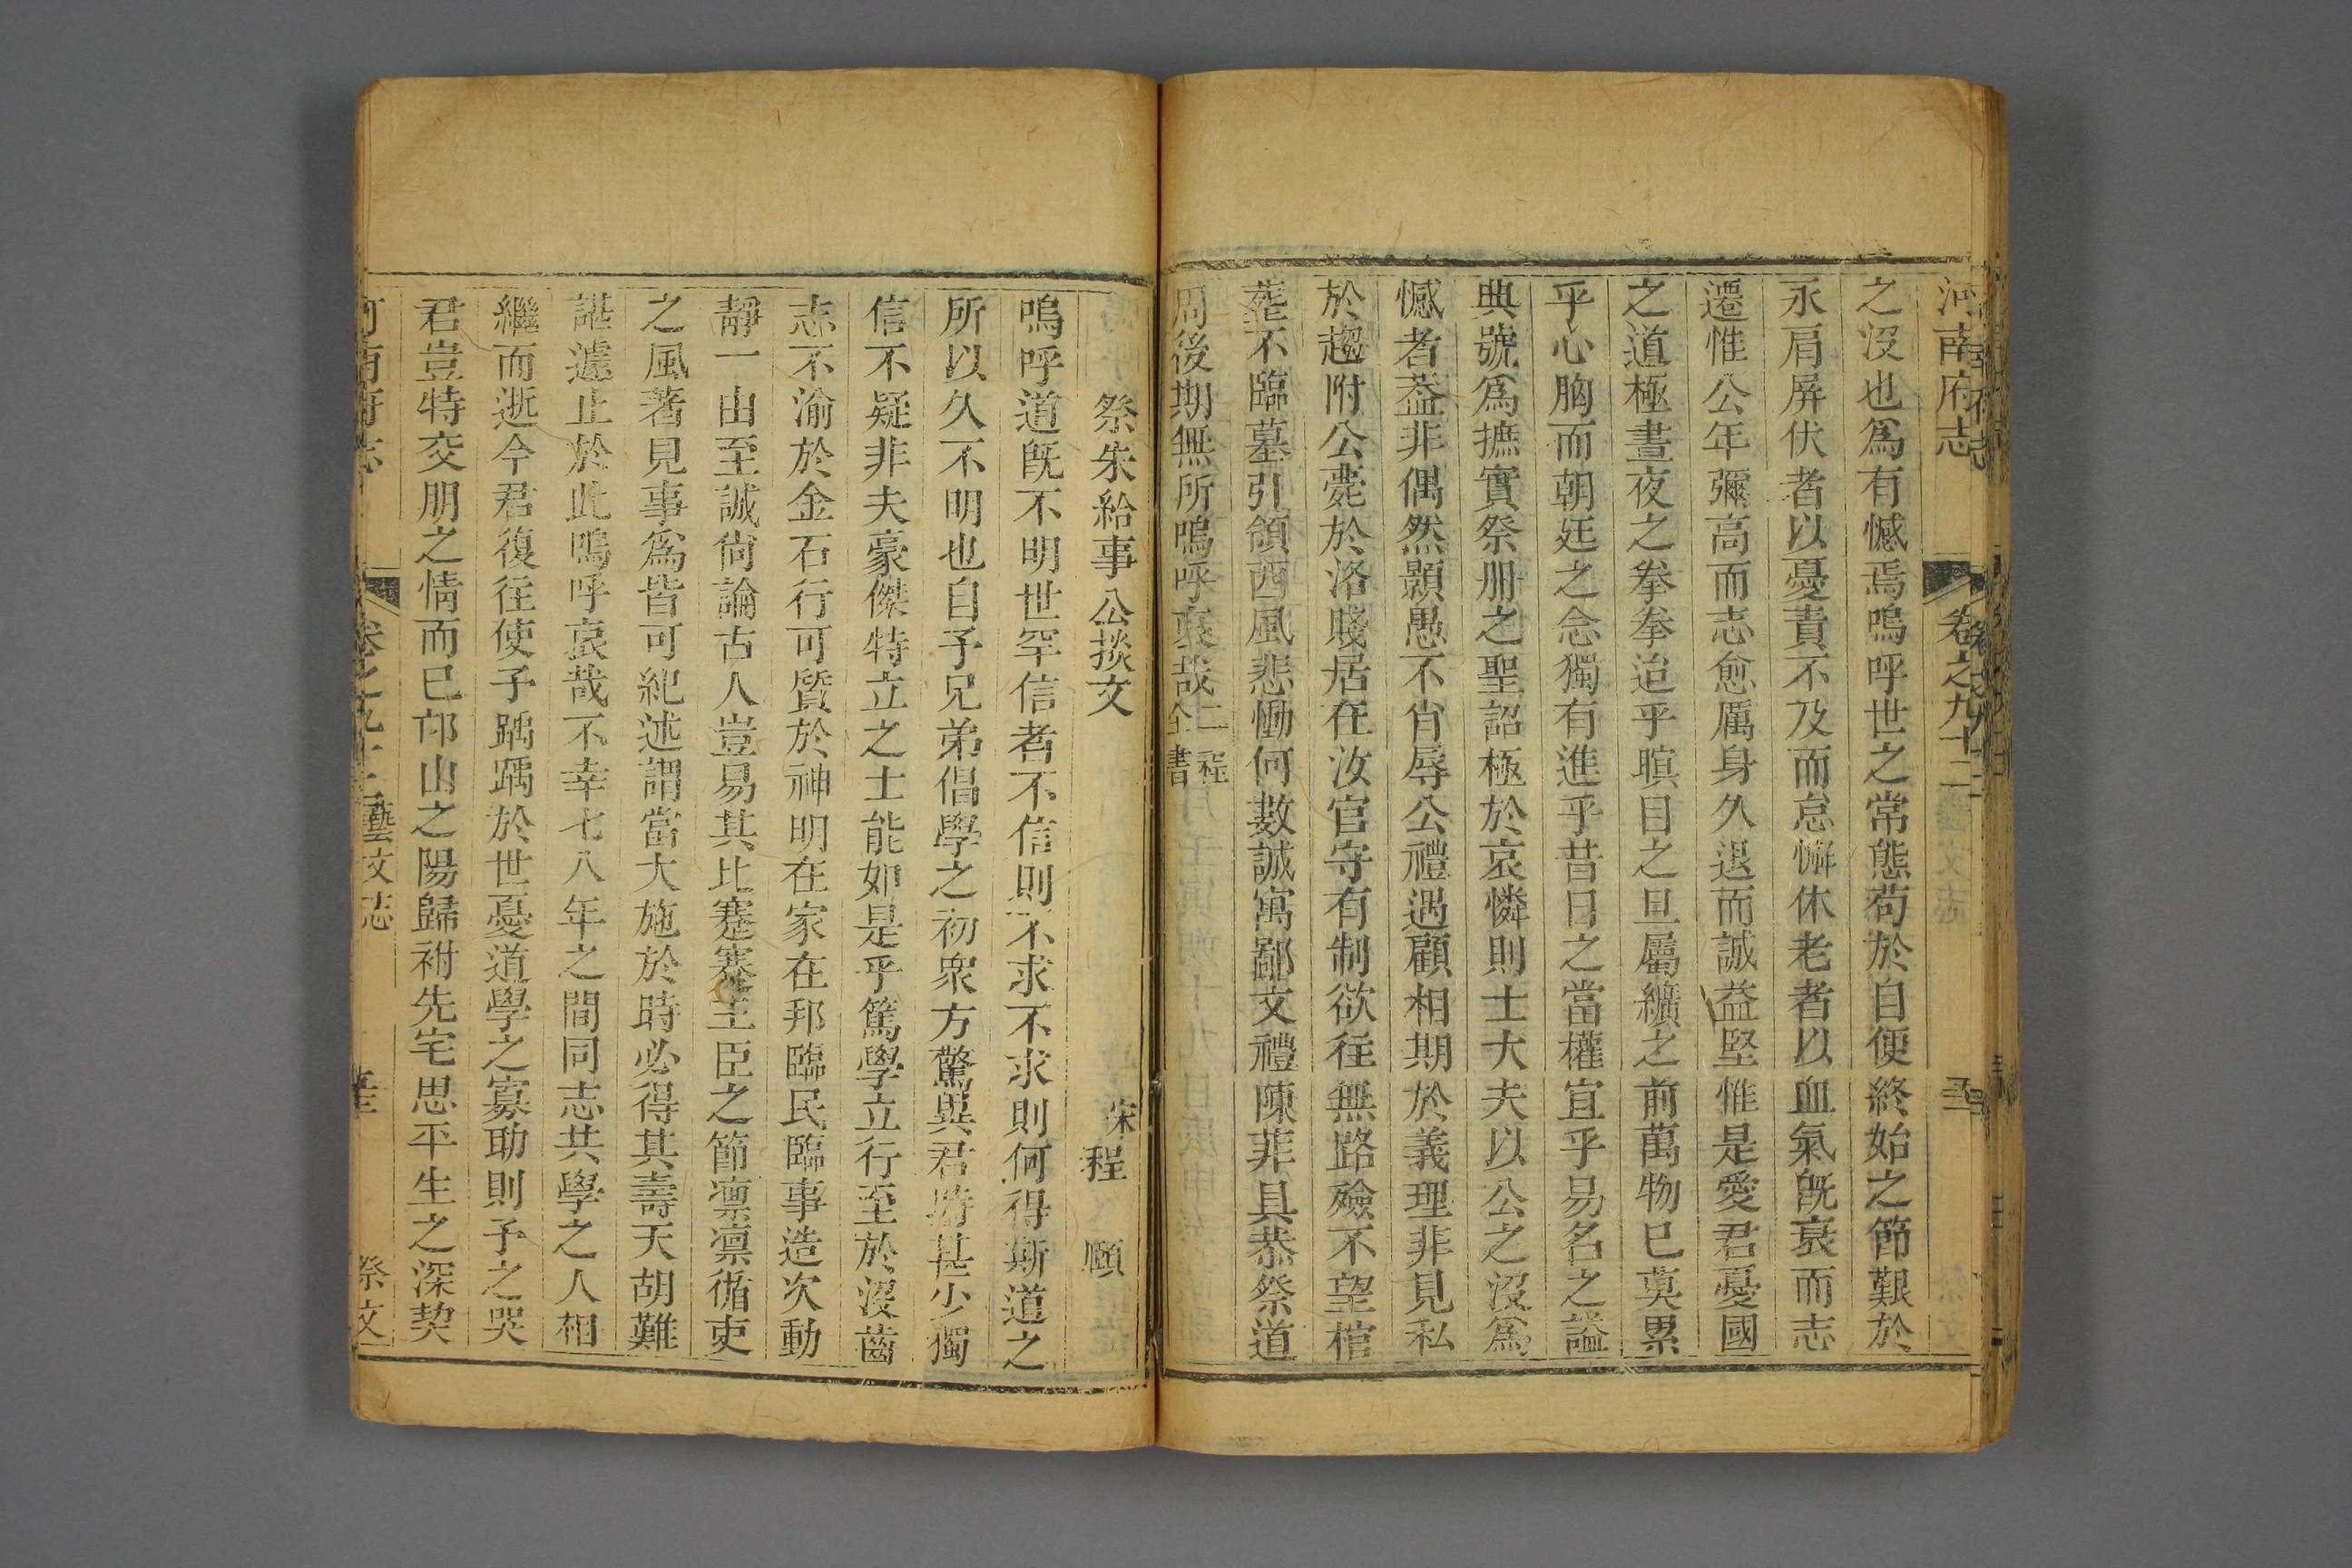 河南府志 卷之九十二
之沒也爲有憾焉嗚呼世之常態苟於自便終始之節艱於
永肩屏伏者以憂責不及而怠懈休老者以血氣旣衰而志
遷惟公年彌高而志愈厲身久退而誠益堅惟是愛君憂國
之道極晝夜之拳拳迨乎瞑目之旦屬纊之前萬物已莫累
乎心胸而朝廷之念獨有進乎昔日之當權宜乎易名之謚
典號爲摭實祭册之聖詔極於哀憐則士大夫以公之沒爲
憾者葢非偶然顥愚不肖辱公禮遇顧相期於義理非見私
於趨附公薨於洛賤居在汝官守有制欲往無路殮不望棺
塟不臨墓引領西風悲慟何數誠寓鄙文禮陳菲具恭祭道
周後期無所嗚呼哀哉二程全書
祭朱給事公掞文 宋 程 頤
嗚呼道旣不明世罕信者不信則不求不求則何得斯道之
所以久不明也自予兄弟倡學之初衆方驚異君時甚少獨
信不疑非夫豪傑特立之士能如是乎篤學立行至於沒齒
志不渝於金石行可質於神明在家在邦臨民臨事造次動
靜一由至誠尙論古人豈易其比蹇蹇王臣之節凛凛循吏
之風著見事爲皆可紀述謂當大施於時必得其壽天胡難
諶遽止於此嗚呼哀哉不幸七八年之間同志共學之人相
繼而逝今君復往使予踽踽於世憂道學之寡助則予之哭
君豈特交朋之情而已邙山之陽歸祔先宅思平生之深契
河南府志 卷之九十二 藝文志 祭文